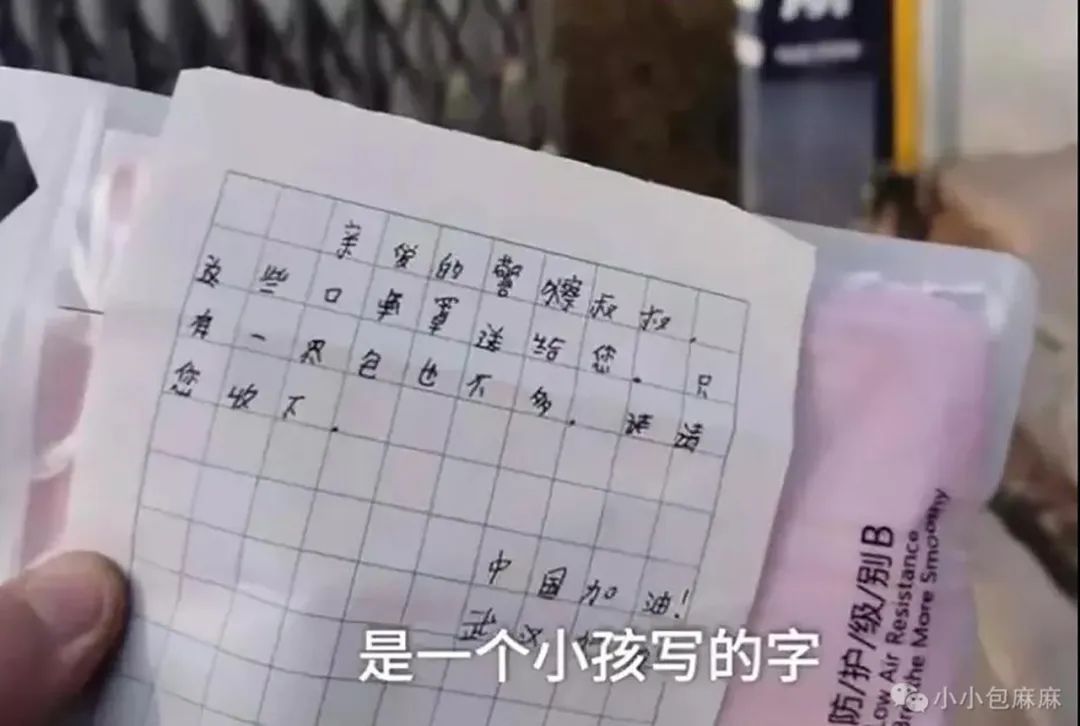 亲爱的警察叔叔.
这些口罩送给您.只
有一包也不多.请
您收下.
中国加油!
武汉
是一个小孩写的字
防/护/级/别B
Low Air Resistance
the More Smoothy
小小包麻麻